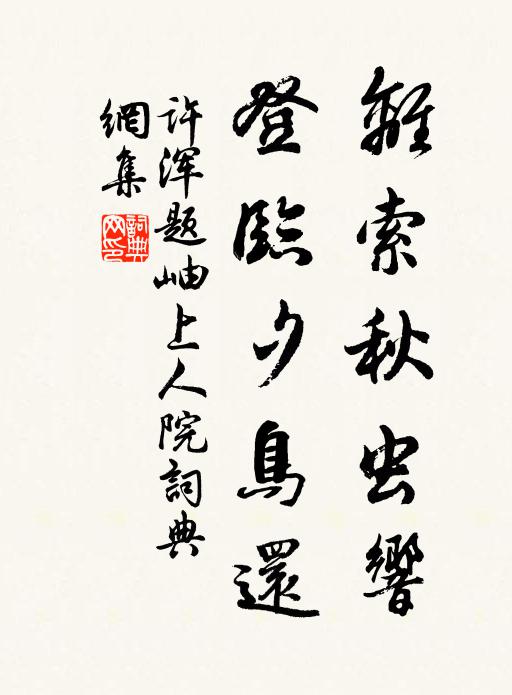 離索秋虫響
登臨夕鳥還
许渾题岫上人院詞典
網集
詞典
网印